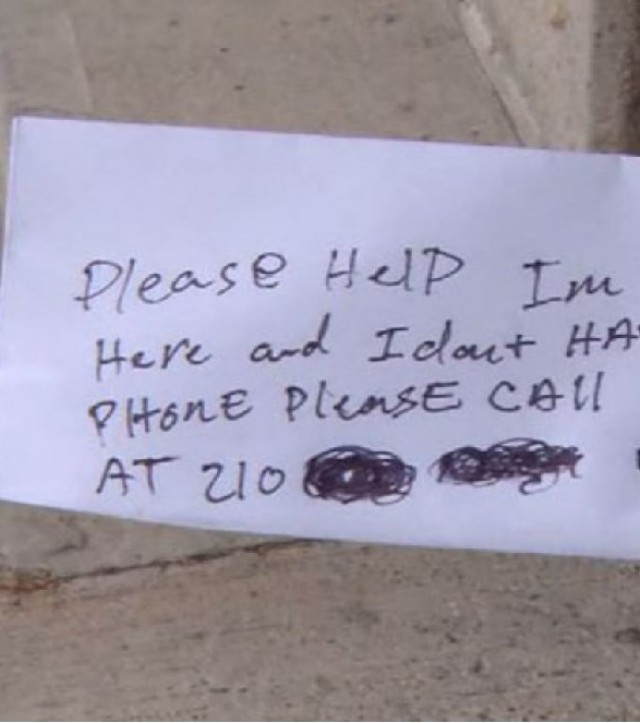 Please Help Im
Here and I dont HA
PHONE Please CAll
AT 210